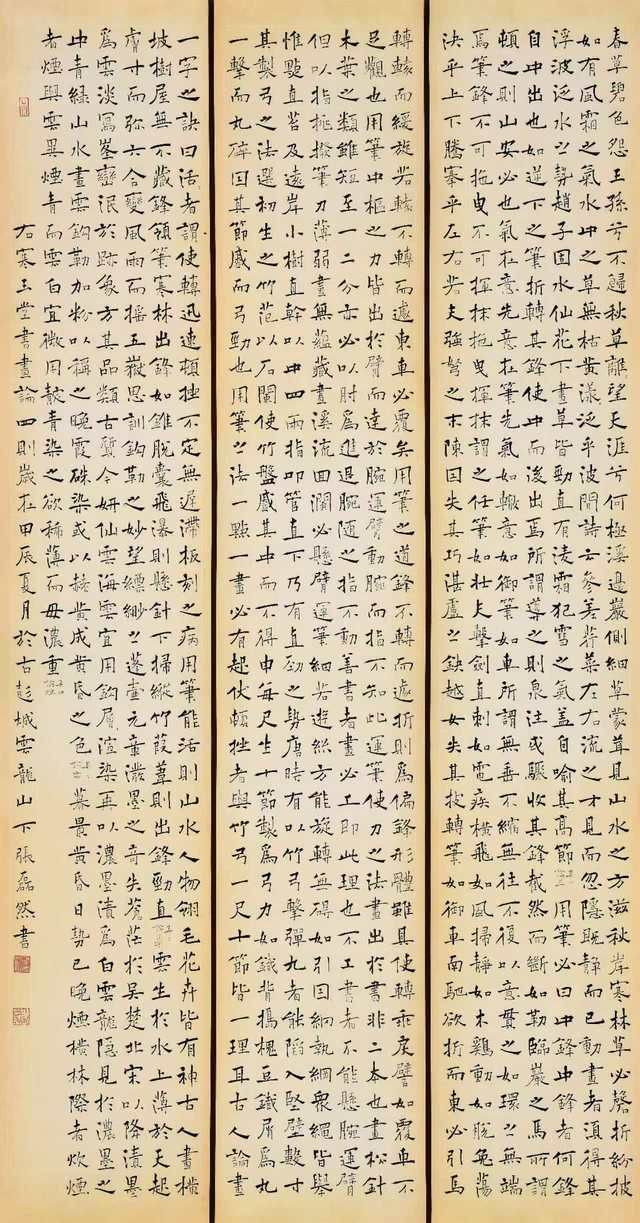 春草碧色怨王孫兮不歸萃草離望天涯兮何極溪邊細草茸草方岸寒林草必磬折紛披
如有風霜之氣水中之草無枯黃漾泛乎波間詩云參差荇菜左右流之才見而忽隱既靜而已動畫者須得其
浮波泛水之勢趙子固水仙花下畫草皆勁直有淩霜犯雪之氣蓋自喻其高節用筆必曰中鋒中鋒者何鋒
自中出也如道下之筆折轉其鋒使中而後出焉所謂導之則泉注或驟收其鋒截然而斷如勒臨巖之馬所謂
頓之則山安必也氣在意先意在筆先氣如轍意如御筆如車所謂無垂不縮無往不復以意貫之如環之無端
焉筆鋒不可拖曳不可揮抹拖曳揮抹謂之任筆如壯夫擊劍直刺如電疾橫飛如風掃靜如木雞動如脫兔蕩
決乎上下騰搴乎左右若夫強弩之末陳因失其巧湛盧之鈌越女失其技轉筆如御車南馳欲折而東必引馬
轉轅而緩旋若轅不轉而遽東車必覆矣用筆之道鋒不轉而遽折則為偏鋒形體雖具使轉乖戾譬如覆車不
足觀也用筆中樞之力皆出於臂而達於腕運臂動腕而指不知此運筆使刀之法畫出於書非二本也畫松針
木葉之類雖短至一二分亦必以肘為進退腕隨之指不動善書者畫必工即此理也不工書者不能懸腕運臂
但以指挑撥筆力薄弱畫無蘊藏畫溪流回瀾必懸臂運筆細若遊絲方能旋轉無礙如引因網執綱眾繩皆舉
惟點直苔及遠岸小樹直幹以中四兩指叩管直下乃有直勁之勢唐時有以竹弓擊彈丸者能陷入堅壁數寸
其製弓之法選初生之竹范以石闌使竹盤蹙其中而不得申每尺生十節製為弓力如鐵背搗槐豆鐵屑為丸
一擊而丸碎因其節蹙而弓勁也用筆之法一點一畫必有起伏頓挫者與竹弓一尺十節皆一理耳古人論畫
一字之訣曰活活者謂使轉迅速頓挫不定無遲滯板刻之病用筆能活則山水人物翎毛花卉皆有神古人畫橫
坡樹屋無不藏鋒領筆寒林出鋒如錐脫囊飛瀑則懸針下掃縱竹葭葦則出鋒勁直雲生於水上薄於天起
膚寸而弥六合變風雨而搖五嶽思訓鈎勒之妙望縹緲之蓬壺元章潑墨之奇失蒼茫於吳楚北宋以降漬墨
為雲淡寫峯巒泯於跡象方其品類古質今妍仙雲海雲宜用鈎屑渲染再以濃墨漬為白雲龍隱見於濃墨之
中青綠山水畫雲鈎勒加粉以稱之晚霞硃染或以赭黃成黃昏之色暮景黃昏日勢已晚煙橫林際者炊煙
者煙與雲異煙青而雲白宜微用靛青染之欲稀薄而毋濃重
右寒玉堂書畫論四則歲在甲辰夏月於古彭城雲龍山下張磊然書